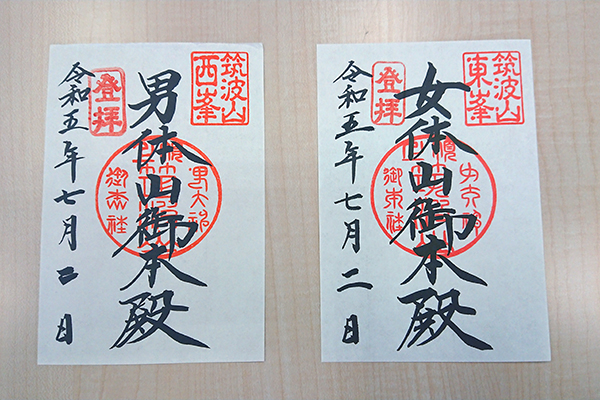 筑波山
西峯
男体山御本殿
登拝
令和五年七月二日
筑波山
東峯
女体山御本殿
登拝
令和五年七月二日